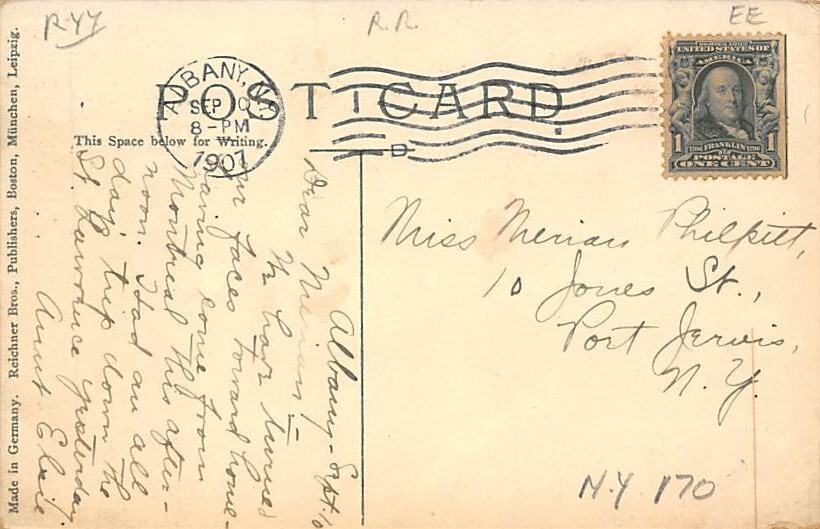 RYY
R.R.
EE
ALBANY, N.Y.
SEP 10
8-PM
1907
POST CARD
This Space below for Writing.
UNITED STATES OF
AMERICA
1 FRANKLIN 1
POSTAGE
ONE CENT
D
Albany - Sept. 10
Dear Merian :-
We have turned
our faces toward home -
having come from
Montreal this after -
noon. Had an all
day trip down the
St. Lawrence yesterday.
Aunt Elsie
Miss Merian Philpitt,
10 Jones St.,
Port Jervis,
N.Y.
N.Y 170
Made in Germany. Reichner Bros., Publishers, Boston, München, Leipzig.